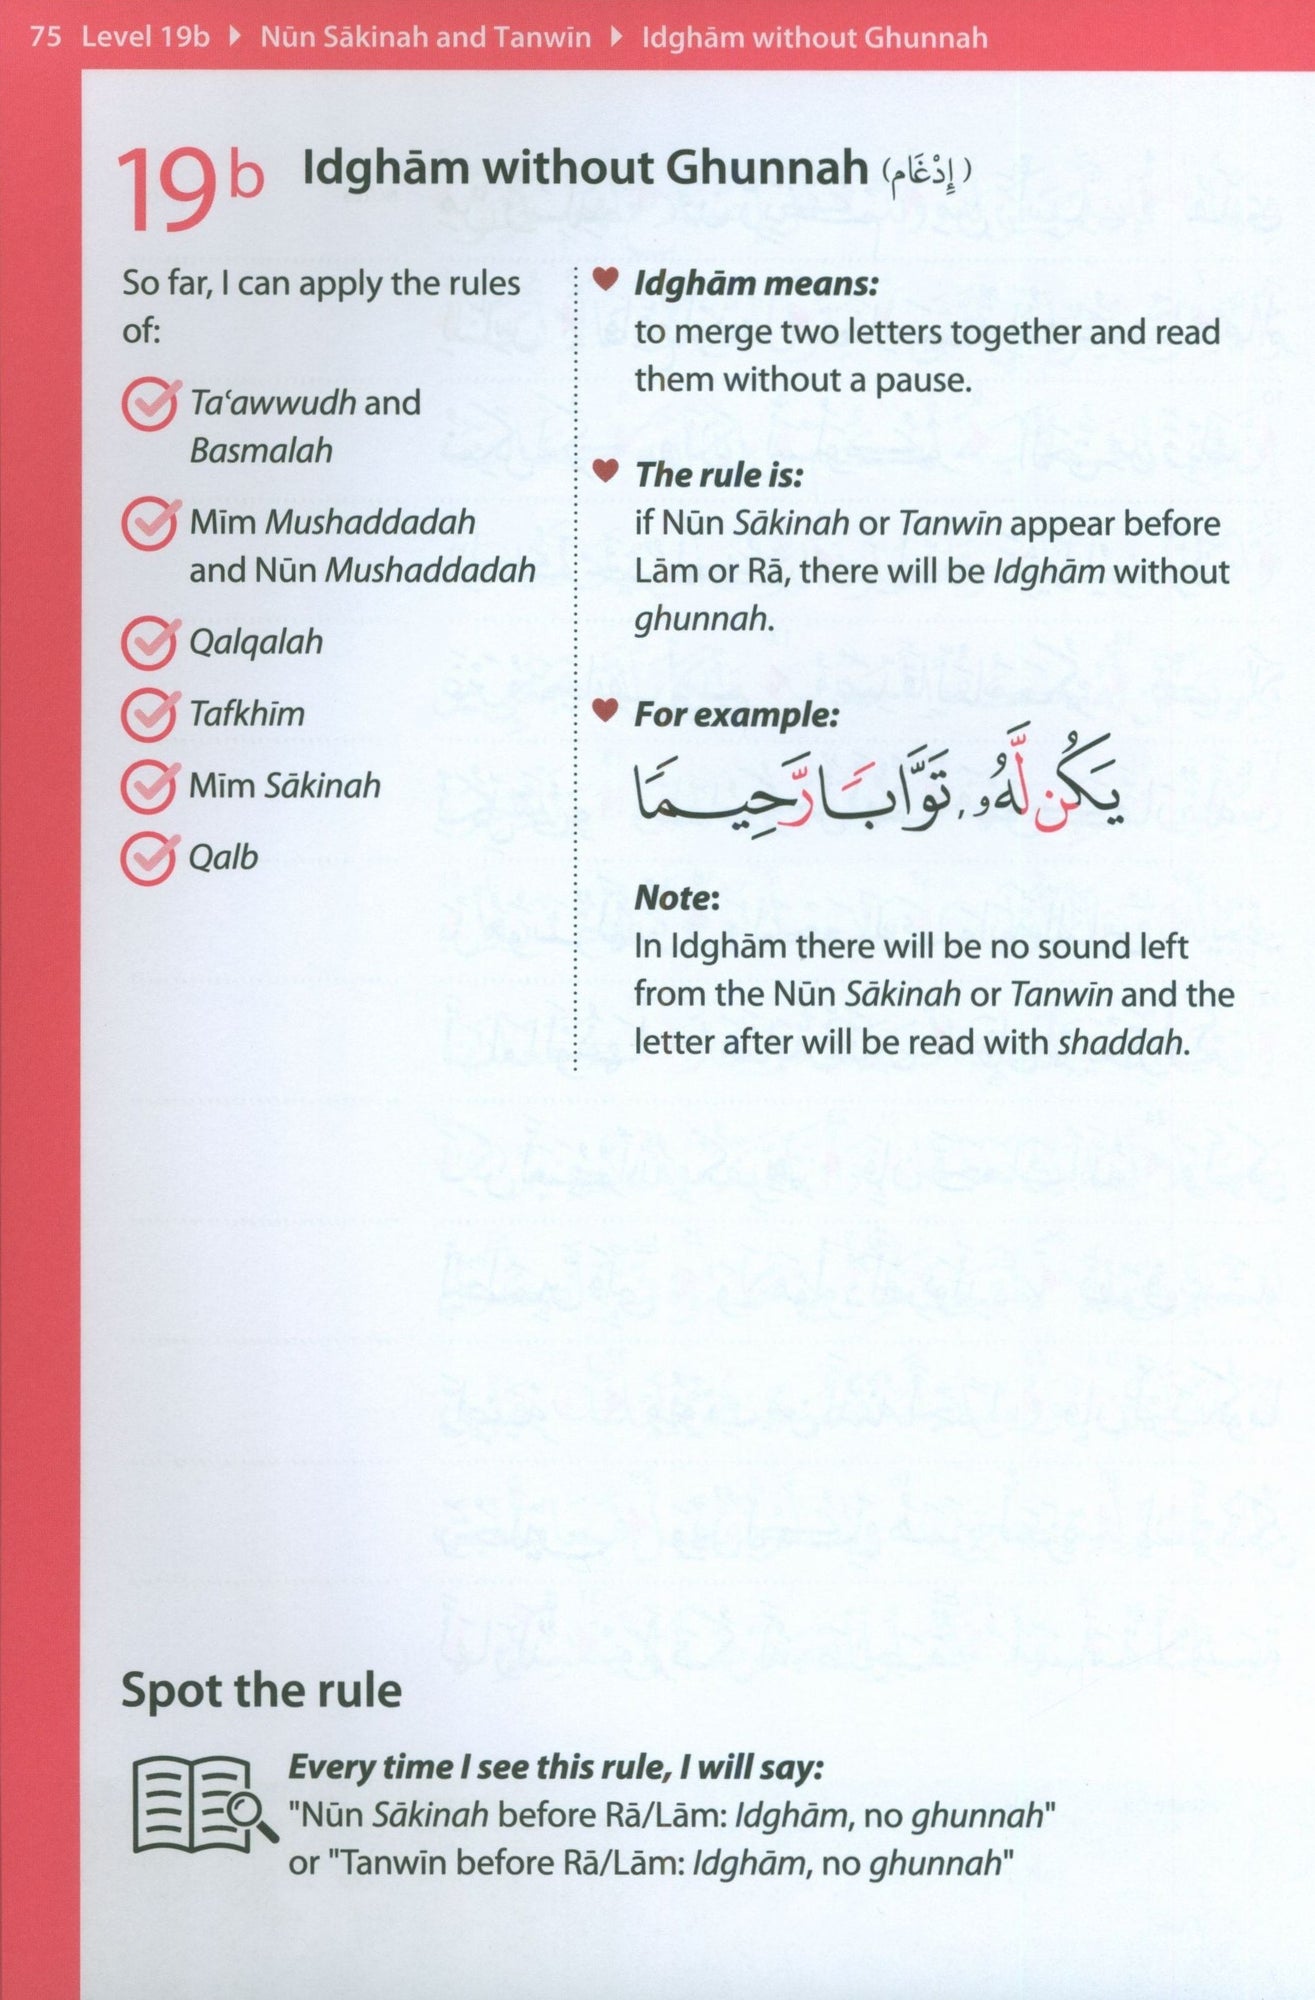 75 Level 19b ▶ Nūn Sākinah and Tanwīn ▶ Idghām without Ghunnah
19b Idghām without Ghunnah (إِدْغَام)
So far, I can apply the rules
of:
Ta‘awwudh and
Basmalah
Mīm Mushaddadah
and Nūn Mushaddadah
Qalqalah
Tafkhīm
Mīm Sākinah
Qalb
Idghām means:
to merge two letters together and read
them without a pause.
The rule is:
if Nūn Sākinah or Tanwīn appear before
Lām or Rā, there will be Idghām without
ghunnah.
For example:
يَكُن لَّهُۥ، تَوَّابَا رَّحِيمَا
Note:
In Idghām there will be no sound left
from the Nūn Sākinah or Tanwīn and the
letter after will be read with shaddah.
Spot the rule
Every time I see this rule, I will say:
"Nūn Sākinah before Rā/Lām: Idghām, no ghunnah"
or "Tanwīn before Rā/Lām: Idghām, no ghunnah"